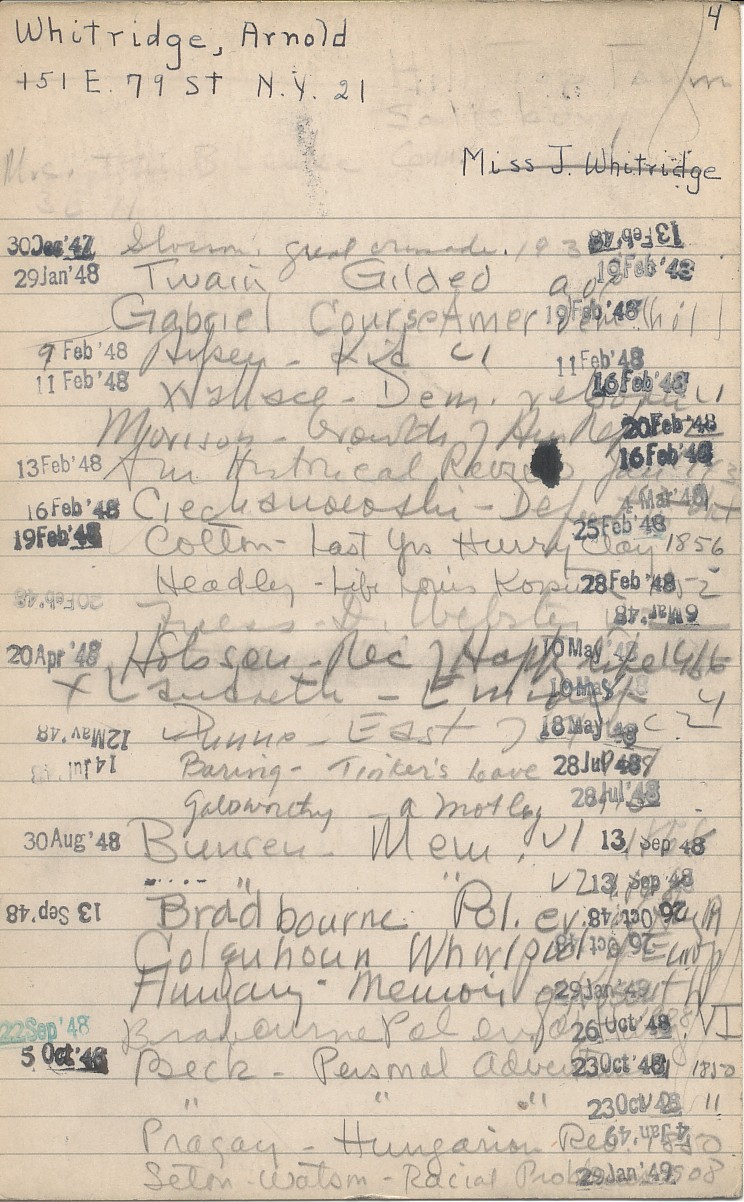 4
Whitridge, Arnold
+51 E. 79 ST N.Y. 21
Hill Top Farm
Salisbury
Conn
Mrs.
Miss J. Whitridge
30Dec'47 Slosson, great crusade. 193 13Feb'48
29Jan'48 Twain Gilded age 10Feb'48
Gabriel Course Amer Dem 19Feb'48
9 Feb'48 Aiken - Kid 11Feb'48
11 Feb'48 Wallace - Dem. reborn 16Feb'48
Morison - Growth of Am Rep 20Feb'48
13Feb'48 Am Historical Review Jan 16Feb'48
16Feb'48 Ciechanowski - Defeat 4 Mar'48
19Feb'48 Colton - Last Yrs Henry Clay 1856 25Feb'48
Headley - Life Louis Kossuth 1852 28Feb'48
20Feb'48 Fuess - D. Webster 6Mar'48
20Apr'48 Hobson - Rec of Happ Life 1916 10May'48
X Landreth - 10May'48
12May'48 Dunne - East of 18May'48
14Jul'48 Baring - Tinker's Leave 28Jul'48
Galsworthy - a Motley 28Jul'48
30Aug'48 Bunsen - Mem. V1 13 Sep'48
" " V2 13 Sep'48
13 Sep'48 Bradbourne Pol. ev. 26 Oct'48
Colquhoun Whirlpool of Europ 26 Oct'48
Hungary - Memoir of 29Jan'49
22Sep'48 Brabourne Pol VI 26 Oct'48
5 Oct'48 Beck - Personal Adventures 1850 23Oct'48
" " " " 23Oct'48
Pragay - Hungarian Rev. 1850 4 Jan'49
Seton-Watson - Racial Problems 1908 29Jan'49